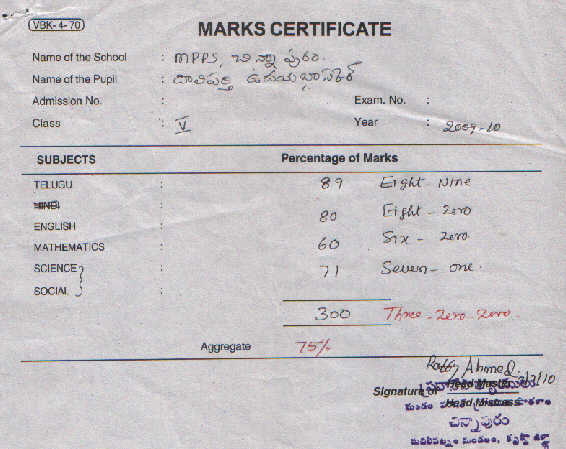 VBK-4-70
MARKS CERTIFICATE
Name of the School : MPPS, చిన్నాపురం.
Name of the Pupil :
Admission No. : Exam. No. :
Class : V Year : 2009-10
SUBJECTS Percentage of Marks
TELUGU : 89 Eight Nine
HINDI
ENGLISH : 80 Eight - Zero
MATHEMATICS : 60 Six - Zero
SCIENCE : 71 Seven - one.
SOCIAL :
300 Three - Zero - Zero.
Aggregate 75%
Ahmed
Signature of Head Master
Head Mistress
చిన్నాపురం